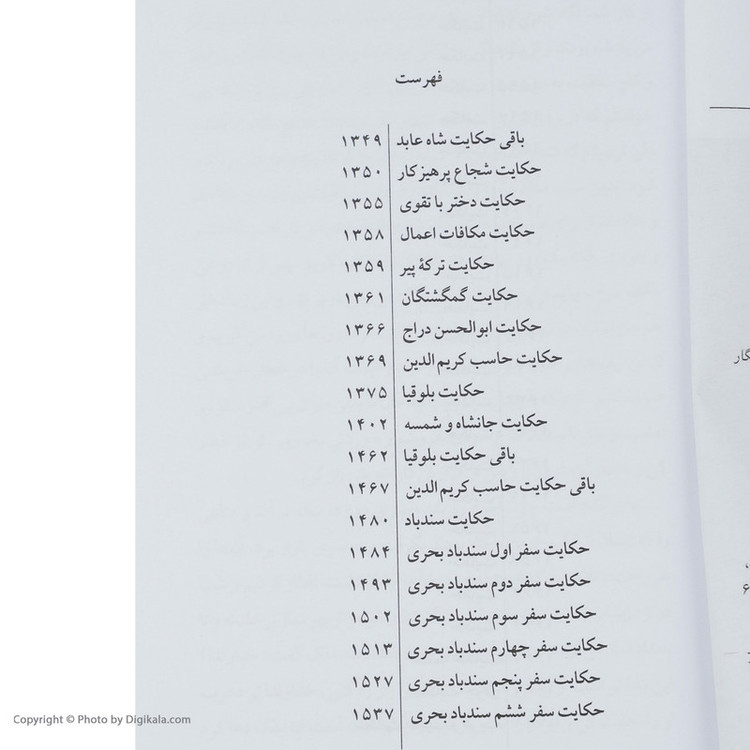 فهرست
باقی حکایت شاه عابد ۱۳۴۹
حکایت شجاع پرهیزکار ۱۳۵۰
حکایت دختر با تقوی ۱۳۵۵
حکایت مکافات اعمال ۱۳۵۸
حکایت ترکهٔ پیر ۱۳۵۹
حکایت گمگشتگان ۱۳۶۱
حکایت ابوالحسن دراج ۱۳۶۶
حکایت حاسب کریم‌الدین ۱۳۶۹
حکایت بلوقیا ۱۳۷۵
حکایت جانشاه و شمسه ۱۴۰۲
باقی حکایت بلوقیا ۱۴۶۲
باقی حکایت حاسب کریم‌الدین ۱۴۶۷
حکایت سندباد ۱۴۸۰
حکایت سفر اول سندباد بحری ۱۴۸۴
حکایت سفر دوم سندباد بحری ۱۴۹۳
حکایت سفر سوم سندباد بحری ۱۵۰۲
حکایت سفر چهارم سندباد بحری ۱۵۱۳
حکایت سفر پنجم سندباد بحری ۱۵۲۷
حکایت سفر ششم سندباد بحری ۱۵۳۷
Copyright © Photo by Digikala.com